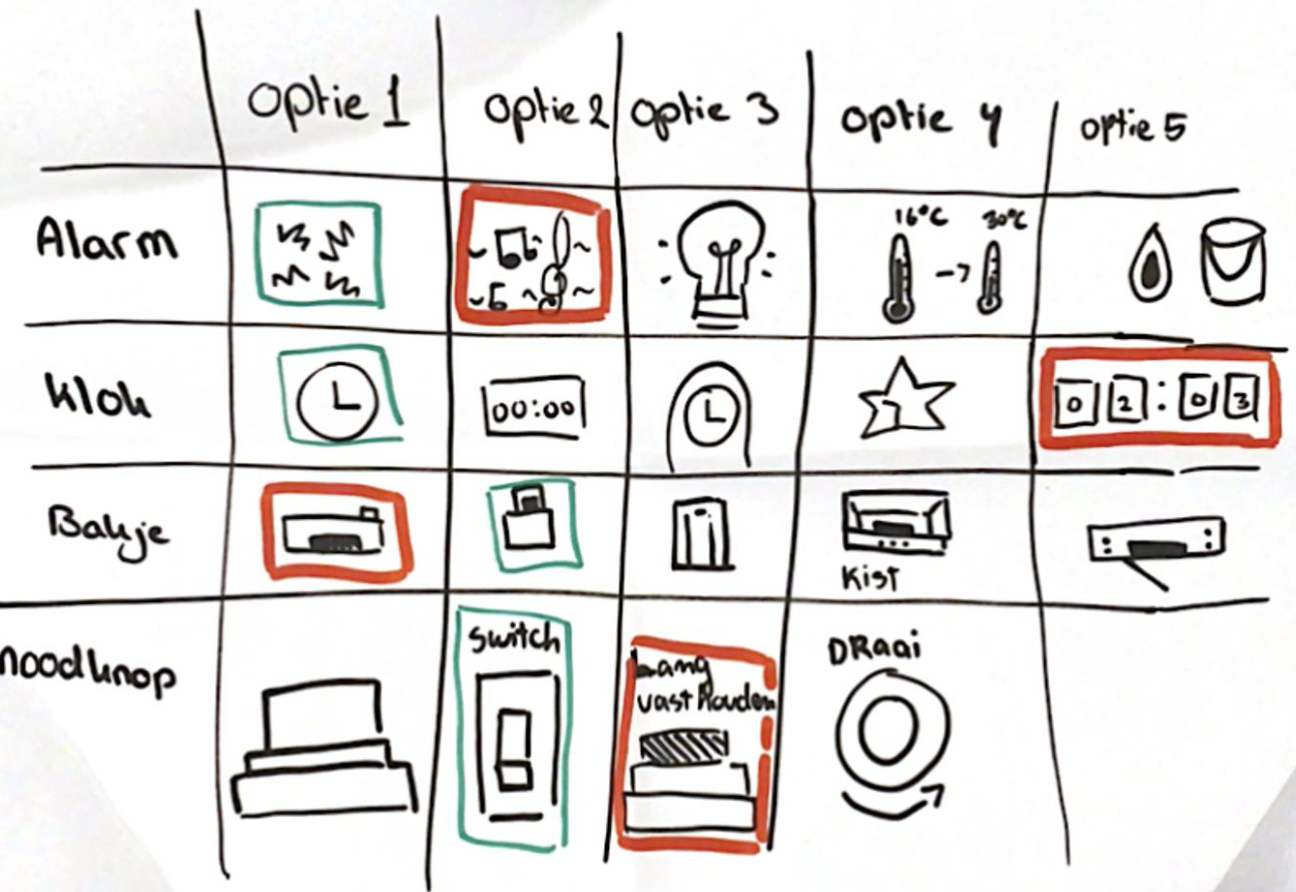 Optie 1
Optie 2
Optie 3
Optie 4
Optie 5
Alarm
16°C
30°C
Klok
00:00
02:03
Bakje
Kist
noodknop
Switch
Lang
vast houden
DRaai